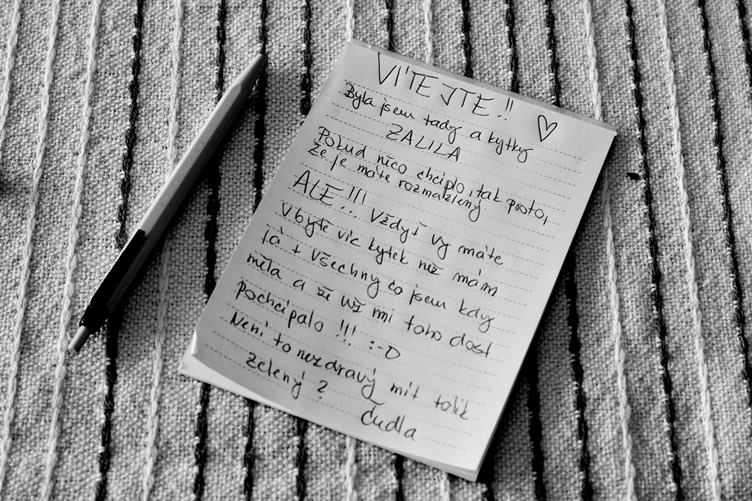 VÍTEJTE!!
Byla jsem tady a kytky
ZALILA
Pokud něco chciplo, tak proto,
že je máte rozmazlený
ALE!!! Vždyť vy máte
v bytě víc kytek než mám
já + všechny co jsem kdy
měla a že už mi toho dost
pochcípalo !!! :-D
Není to nezdravý mít tolik
zelený ?
Čudla